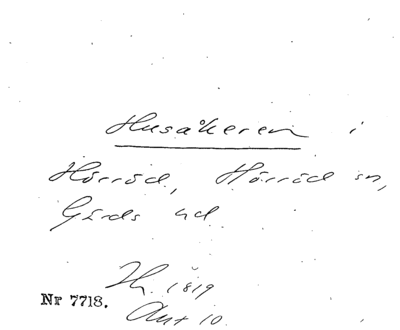 Husåkeren i
Hörröd, Hörröd sn,
Gärds hd
H. 1819
Nr 7718.
Akt 10.